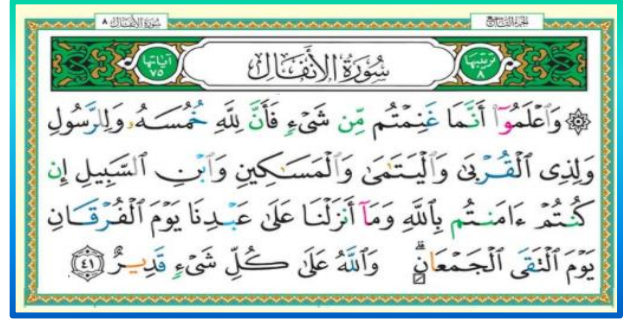 سُورَةُ الأَنْفَال ٨
الجزء العاشر
ترتيبها ٨
سُورَةُ الأَنْفَالِ
آياتها ٧٥
۞ وَٱعْلَمُوٓا۟ أَنَّمَا غَنِمْتُم مِّن شَىْءٍ فَأَنَّ لِلَّهِ خُمُسَهُۥ وَلِلرَّسُولِ
وَلِذِى ٱلْقُرْبَىٰ وَٱلْيَتَـٰمَىٰ وَٱلْمَسَـٰكِينِ وَٱبْنِ ٱلسَّبِيلِ إِن
كُنتُمْ ءَامَنتُم بِٱللَّهِ وَمَآ أَنزَلْنَا عَلَىٰ عَبْدِنَا يَوْمَ ٱلْفُرْقَانِ
يَوْمَ ٱلْتَقَى ٱلْجَمْعَانِ ۗ وَٱللَّهُ عَلَىٰ كُلِّ شَىْءٍ قَدِيرٌ ٤١